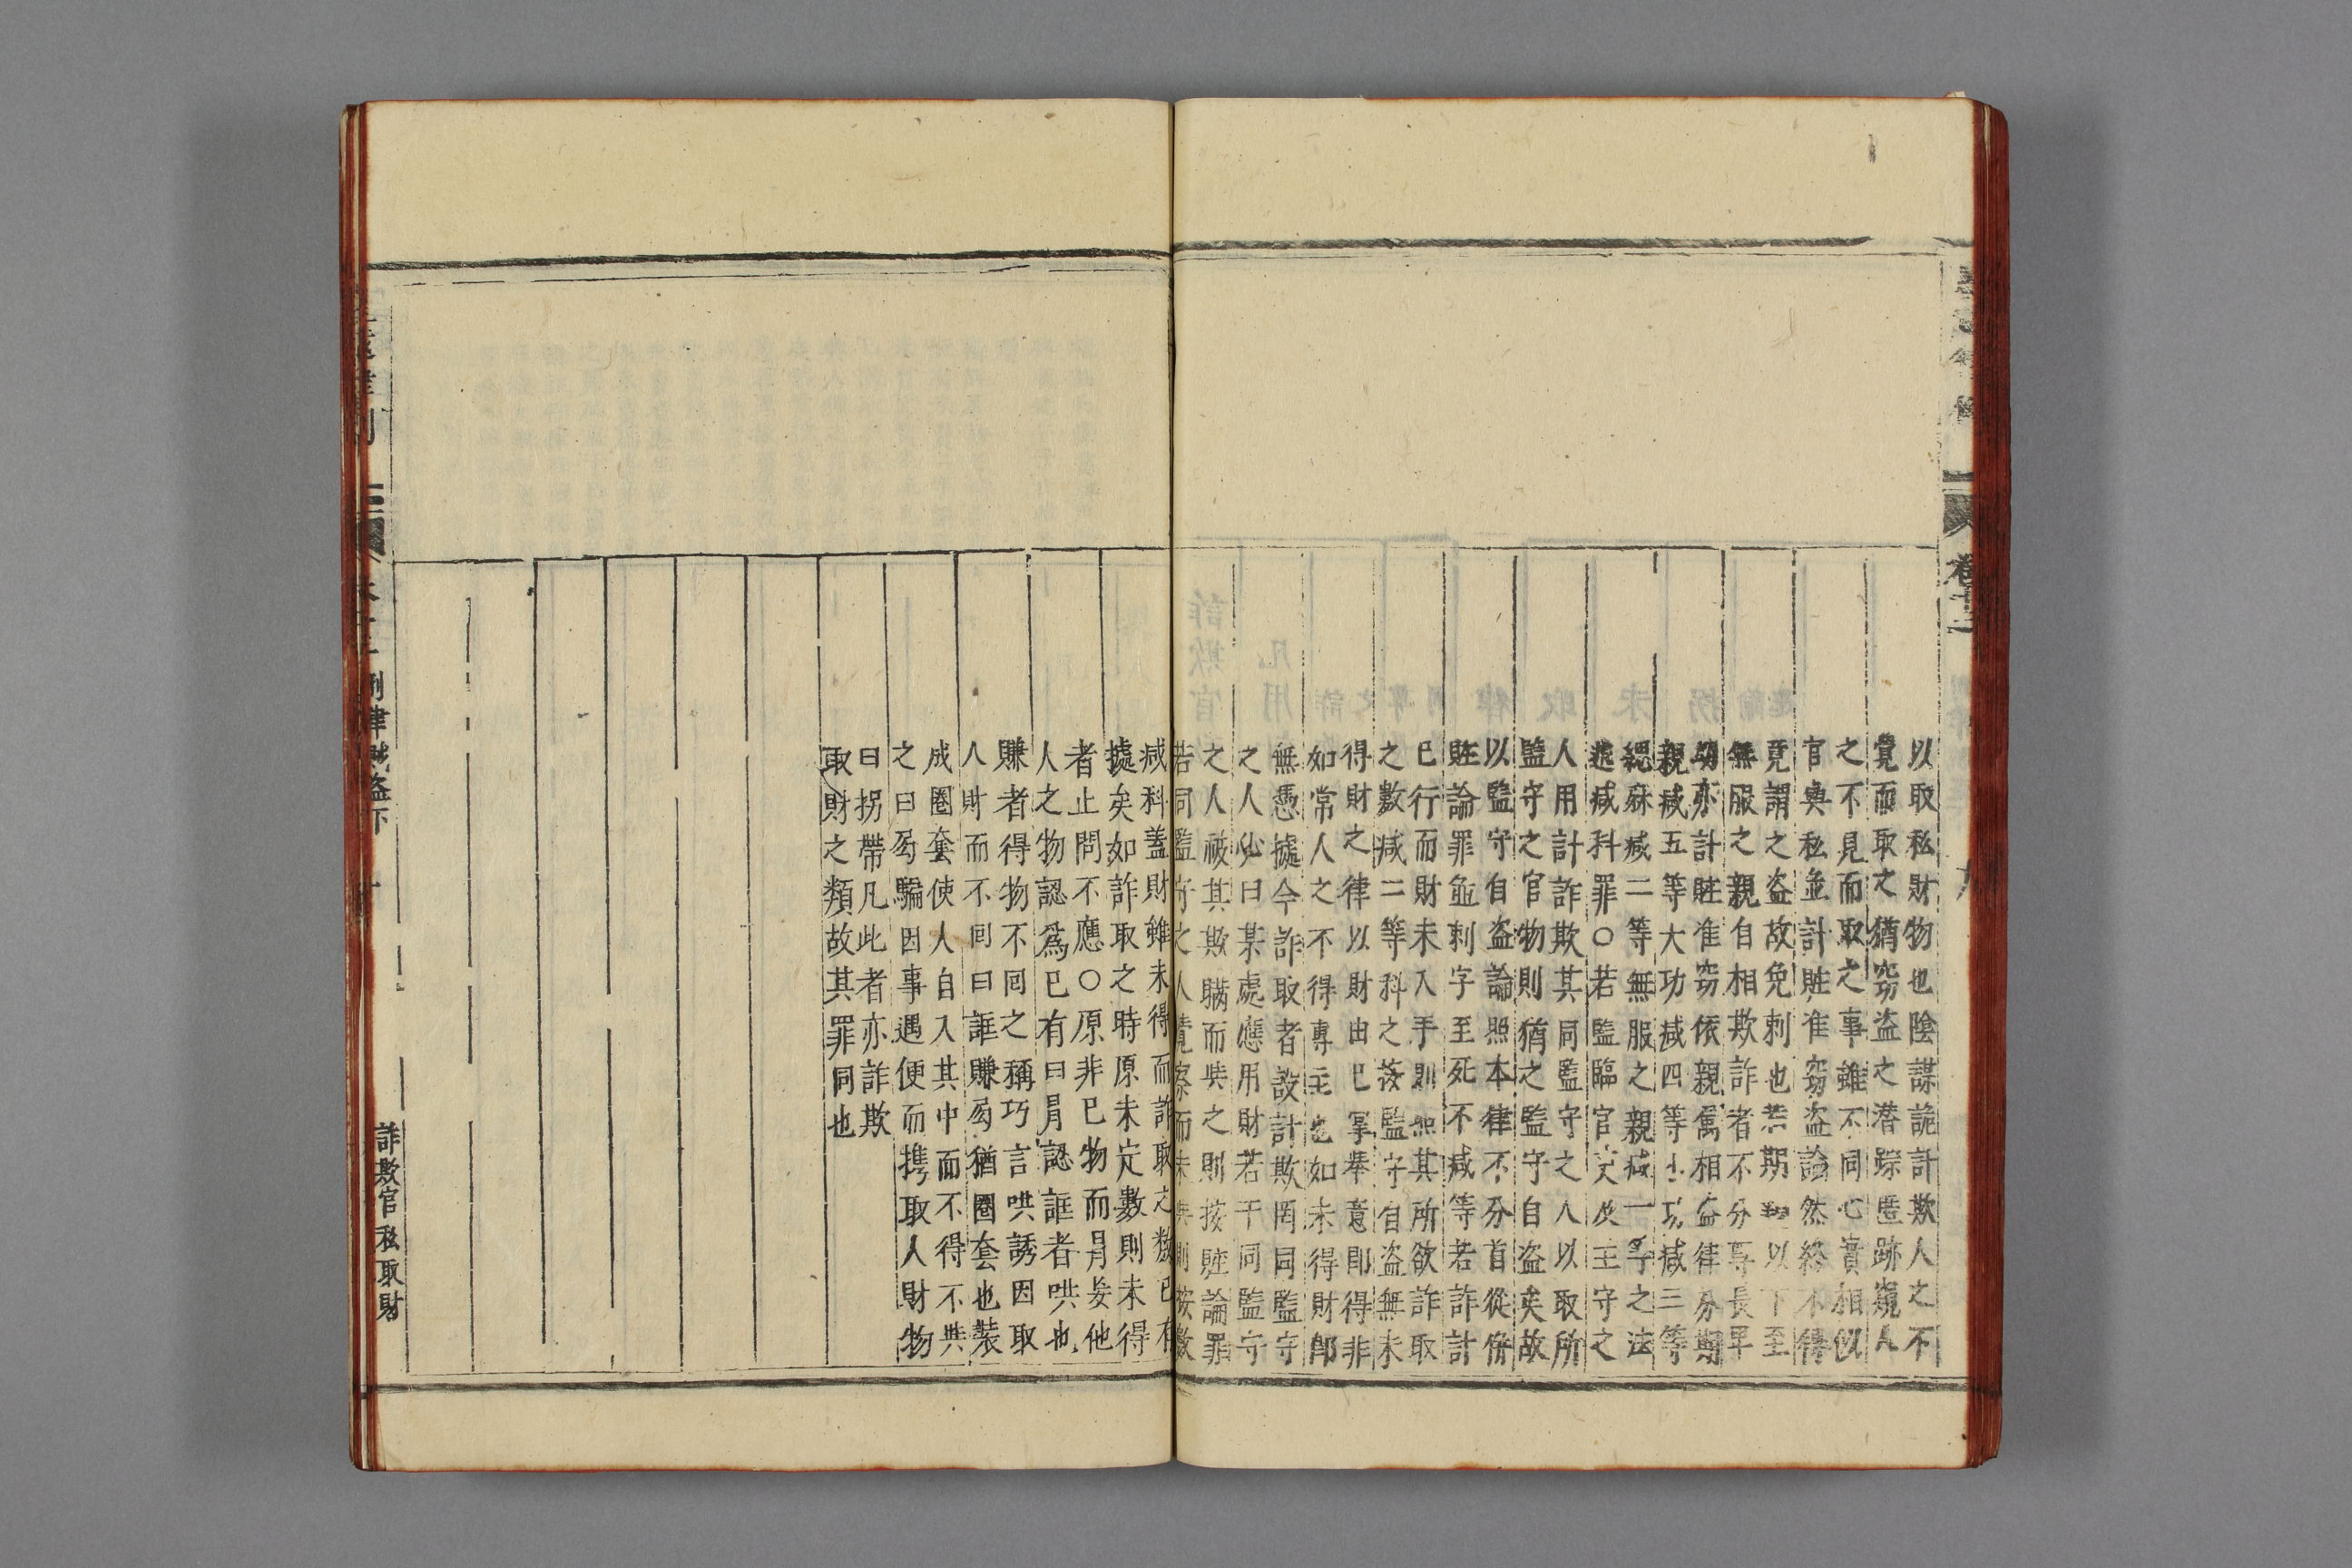 以取私財物也陰謀詭計欺人之不
覺而取之猶窃盗之潜踪匿跡窺人
之不見而取之事雖不同心實相似
官與私並計賍准窃盗論然終不得
竟謂之盗故免刺也若期親以下至
無服之親自相欺詐者不分尊長卑
幼亦計賍准窃依親属相盗律分期
親减五等大功减四等小功减三等
緦麻减二等無服之親减一等之法
逓减科罪○若監臨官吏及主守之
人用計詐欺其同監守之人以取所
監守之官物則猶之監守自盗矣故
以監守自盗論照本律不分首從併
賍論罪並刺字至死不减等若詐計
已行而財未入手則照其所欲詐取
之數减二等科之葢監守自盗無未
得財之律以財由已掌舉意即得非
如常人之不得專主也如未得財即
無憑據今詐取者設計欺罔同監守
之人必曰某處應用財若干同監守
之人被其欺瞞而與之則按賍論罪
若同監守之人覺察而未與則按數
减科蓋財雖未得而詐取之數已有
據矣如詐取之時原未定數則未得
者止問不應○原非已物而冐妄他
人之物認爲已有曰冐認誆者哄也
賺者得物不同之稱巧言哄誘因取
人財而不囘曰誆賺局猶圈套也裝
成圈套使人自入其中而不得不與
之曰局騙因事遇便而携取人財物
曰拐帶凡此者亦詐欺
取財之類故其罪同也
刑律賊盗下
詐欺官私取財